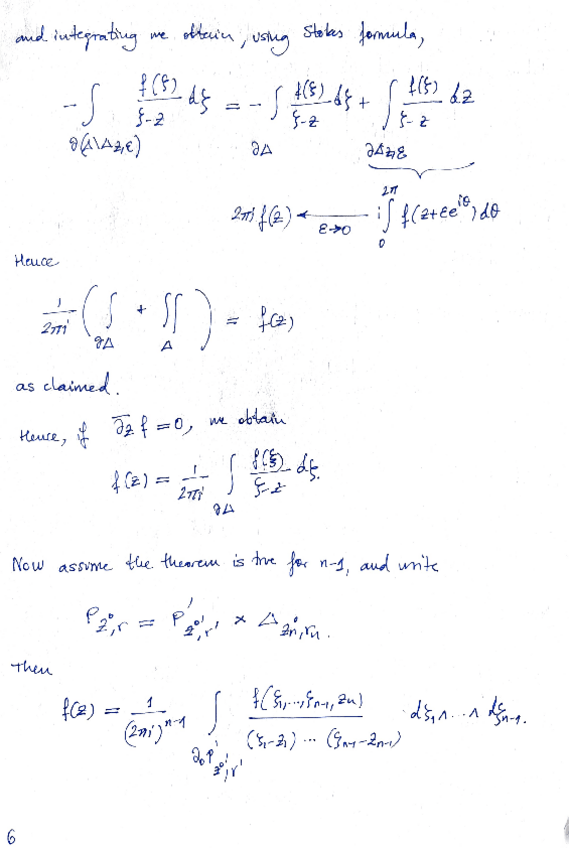 and integrating we obtain, using Stokes formula,
- ∫_{∂(Δ\Δ_{z,ε})} f(ξ)/(ξ-z) dξ = - ∫_{∂Δ} f(ξ)/(ξ-z) dξ + ∫_{∂Δ_{z,ε}} f(ξ)/(ξ-z) dz
2πi f(z) ←_{ε→0} i∫_0^{2π} f(z+εe^{iθ}) dθ
Hence
1/2πi ( ∫_{∂Δ} + ∬_Δ ) = f(z)
as claimed.
Hence, if ∂̄_z f = 0, we obtain
f(z) = 1/2πi ∫_{∂Δ} f(ξ)/(ξ-z) dξ.
Now assume the theorem is true for n-1, and write
P_{z°,r} = P'_{z°',r'} × Δ_{z°_n,r_n}.
Then
f(z) = 1/(2πi)^{n-1} ∫_{∂_0 P'_{z°',r'}} f(ξ_1,...,ξ_{n-1},z_n)/((ξ_1-z_1) ... (ξ_{n-1}-z_{n-1})) dξ_1 ∧ ... ∧ dξ_{n-1}.
6